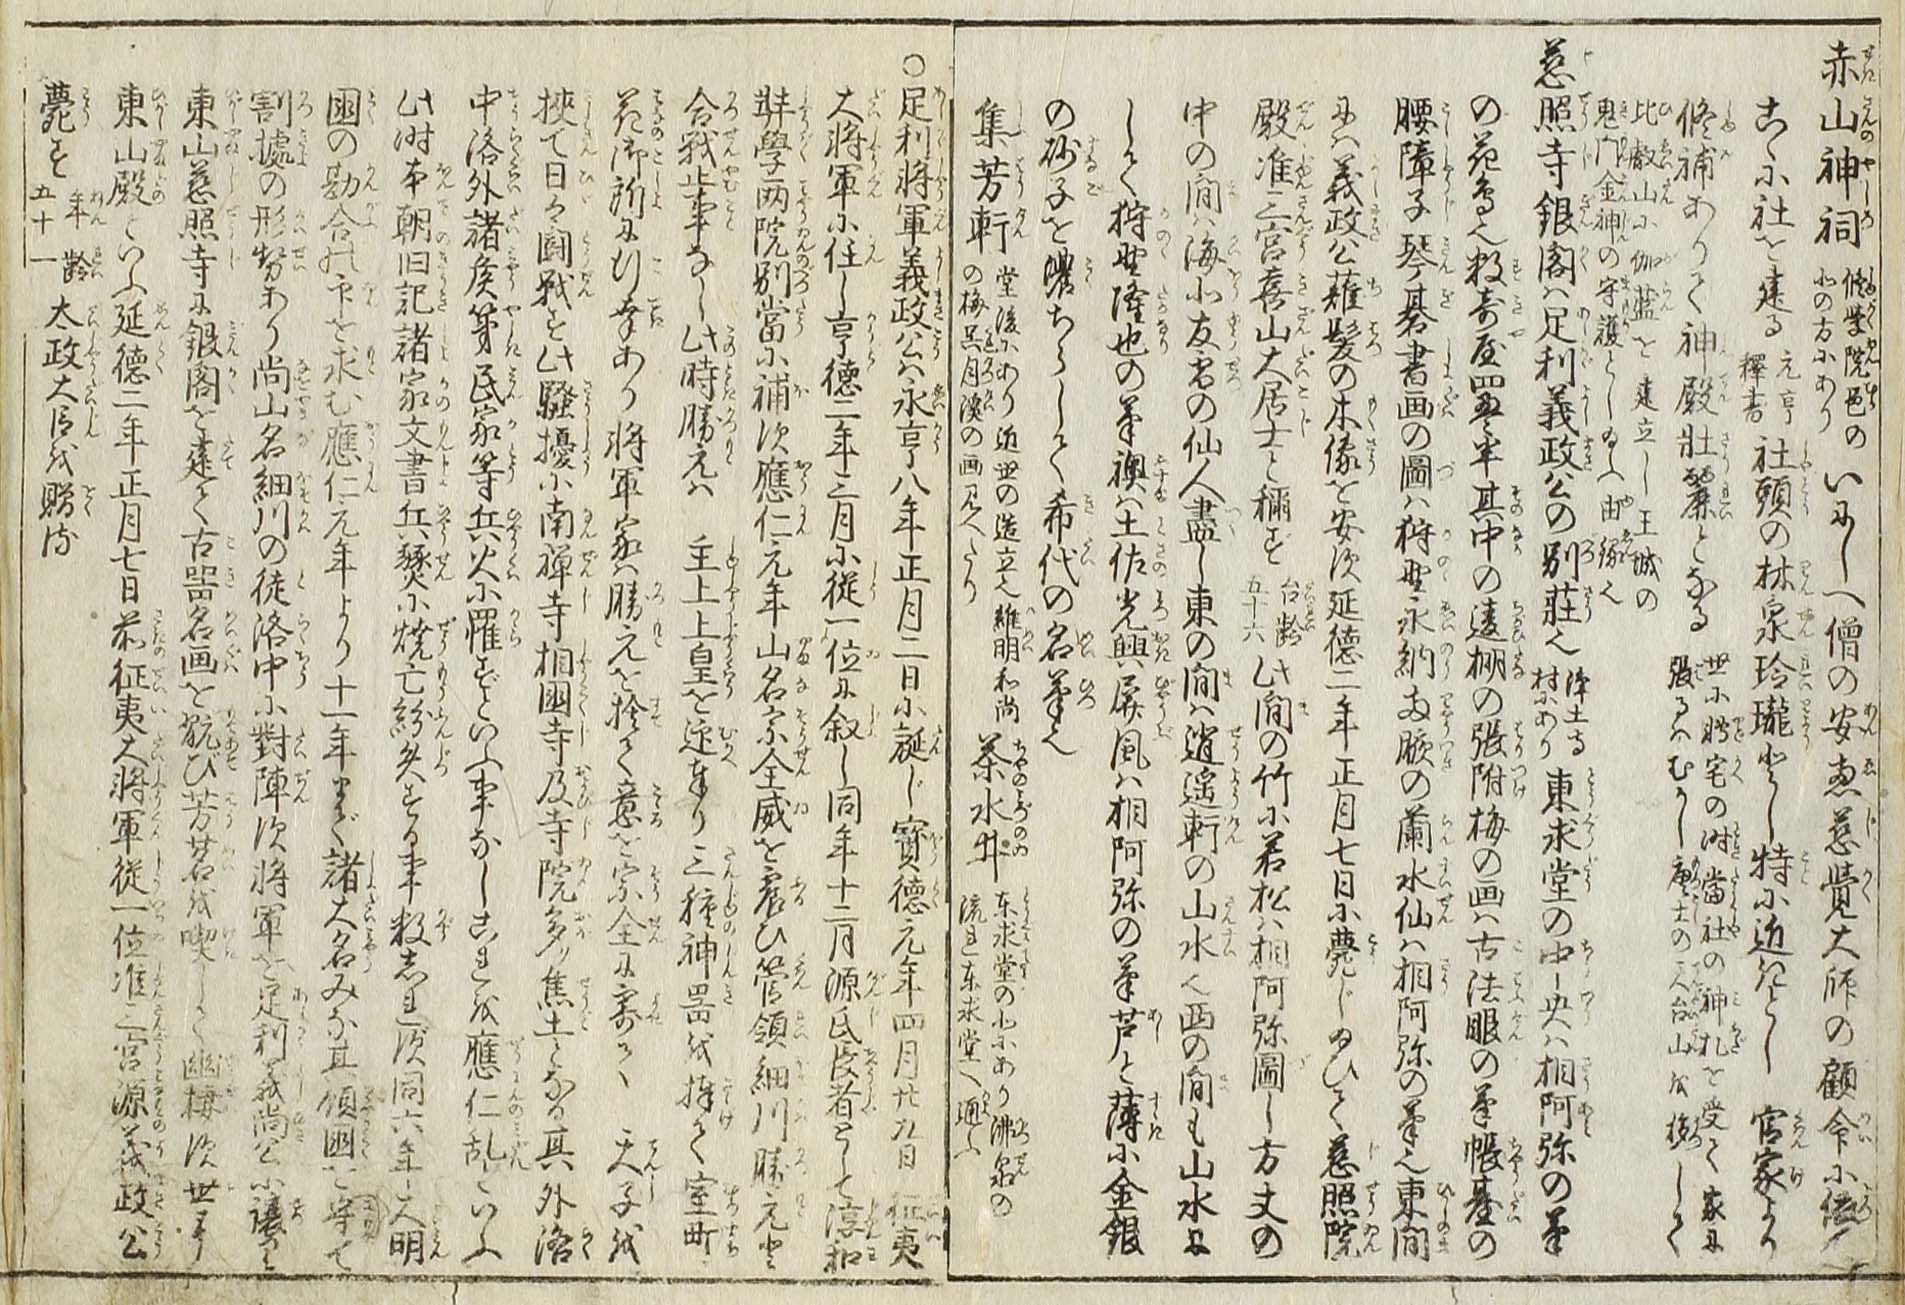 赤山神祠 修学院邑の 北の方にあり いにしへ僧の安恵慈覚大師の顧命に依り
こゝに社を建る 元亨釋書 社頭の林泉玲瓏として特に近きとし 官家より
修補ありて神殿壮麗となる 世に転宅の時当社の神札を受て家に
張るはむかし 唐土の天台山を移しまて
比叡山に伽藍を建立し王城の
鬼門金神の守護としたまふ由縁也
慈照寺銀閣は足利義政公の別荘也 浄土寺村にあり 東求堂の中央は相阿弥の筆
の花鳥也数寄屋四畳半其中の違棚の張附梅の画は古法眼の筆帳台の
腰障子琴碁書画の図は狩野永納両脇の蘭水仙は相阿弥の筆也東間
には義政公薙髪の木像を安ず延徳二年正月七日に薨じ給ひて慈照院
殿准三宮喜山大居士と称す 台齢五十六 此間の竹に若松は相阿弥図し方丈の
中の間は海北友雪の仙人尽し東の間は逍遥軒の山水也西の間も山水に
して狩野隆也の筆襖は土佐光興屏風は相阿弥の筆芦と薄に金銀
の砂子を濃ちらして希代の名筆也
集芳軒 堂後にあり近世の造立也維明和尚
の梅呉月渓の画見へたり 茶水井 東求堂の北にあり沸泉の
流れ東求堂へ通ふ
○足利将軍義政公は永享八年正月二日に誕じ宝徳元年四月廿九日征夷
大将軍に任し享徳二年三月に従一位に叙し同年十二月源氏長者として淳和
弉学両院別当に補す応仁元年山名宗全威を震ひ管領細川勝元と
合戦止事なし此時勝元は 主上上皇を迎奉り三種神器を捧て室町
花御所に行幸あり将軍家は勝元を捨て意を宗全に寄らる 天子を
挟て日々闘戦す此騒擾に南禅寺相国寺及寺院多く焦土となる其外洛
中洛外諸侯第民家等兵火に罹ずといふ事なしこれを応仁乱といふ
此時本朝旧記諸家文書兵燹に焼亡紛失する事数しれず同六年大明
国の勘合の印を求む応仁元年より十一年まで諸大名みな其領国を守て
割拠の形勢あり尚山名細川の徒洛中に対陣す将軍を足利義尚公に譲り
東山慈照寺に銀閣を建て古器名画を翫び芳茗を喫して幽棲す世に
東山殿といふ延徳二年正月七日前征夷大将軍従一位准三宮源義政公
薨ず 年齢五十一 太政大臣を贈る